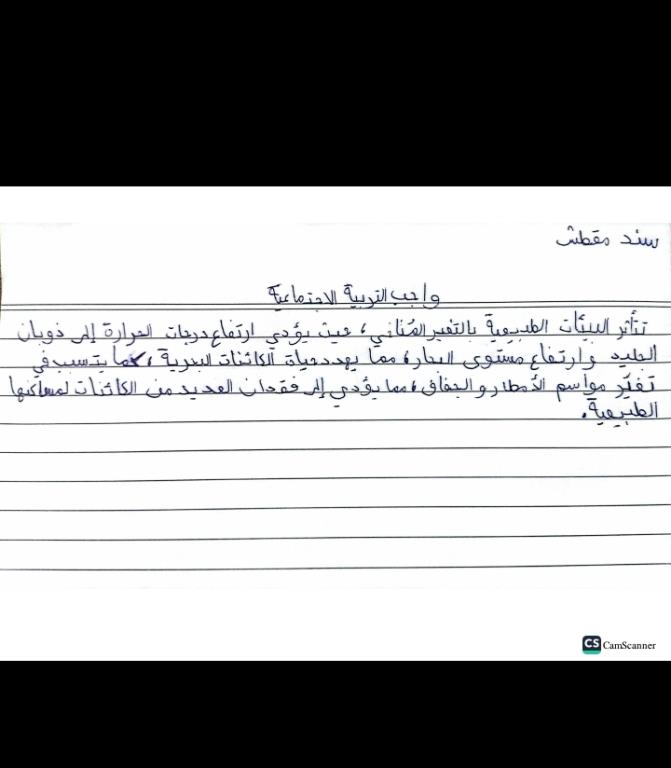 سند مقطش
واجب التربية الاجتماعية
تتأثر البيئات الطبيعية بالتغير المُناخي، حيث يؤدي ارتفاع درجات الحرارة إلى ذوبان
الجليد وارتفاع مستوى البحار، مما يهدد حياة الكائنات البحرية، كما يتسبب في
تغيّر مواسم الأمطار والجفاف، مما يؤدي إلى فقدان العديد من الكائنات لمساكنها
الطبيعية.
CS CamScanner